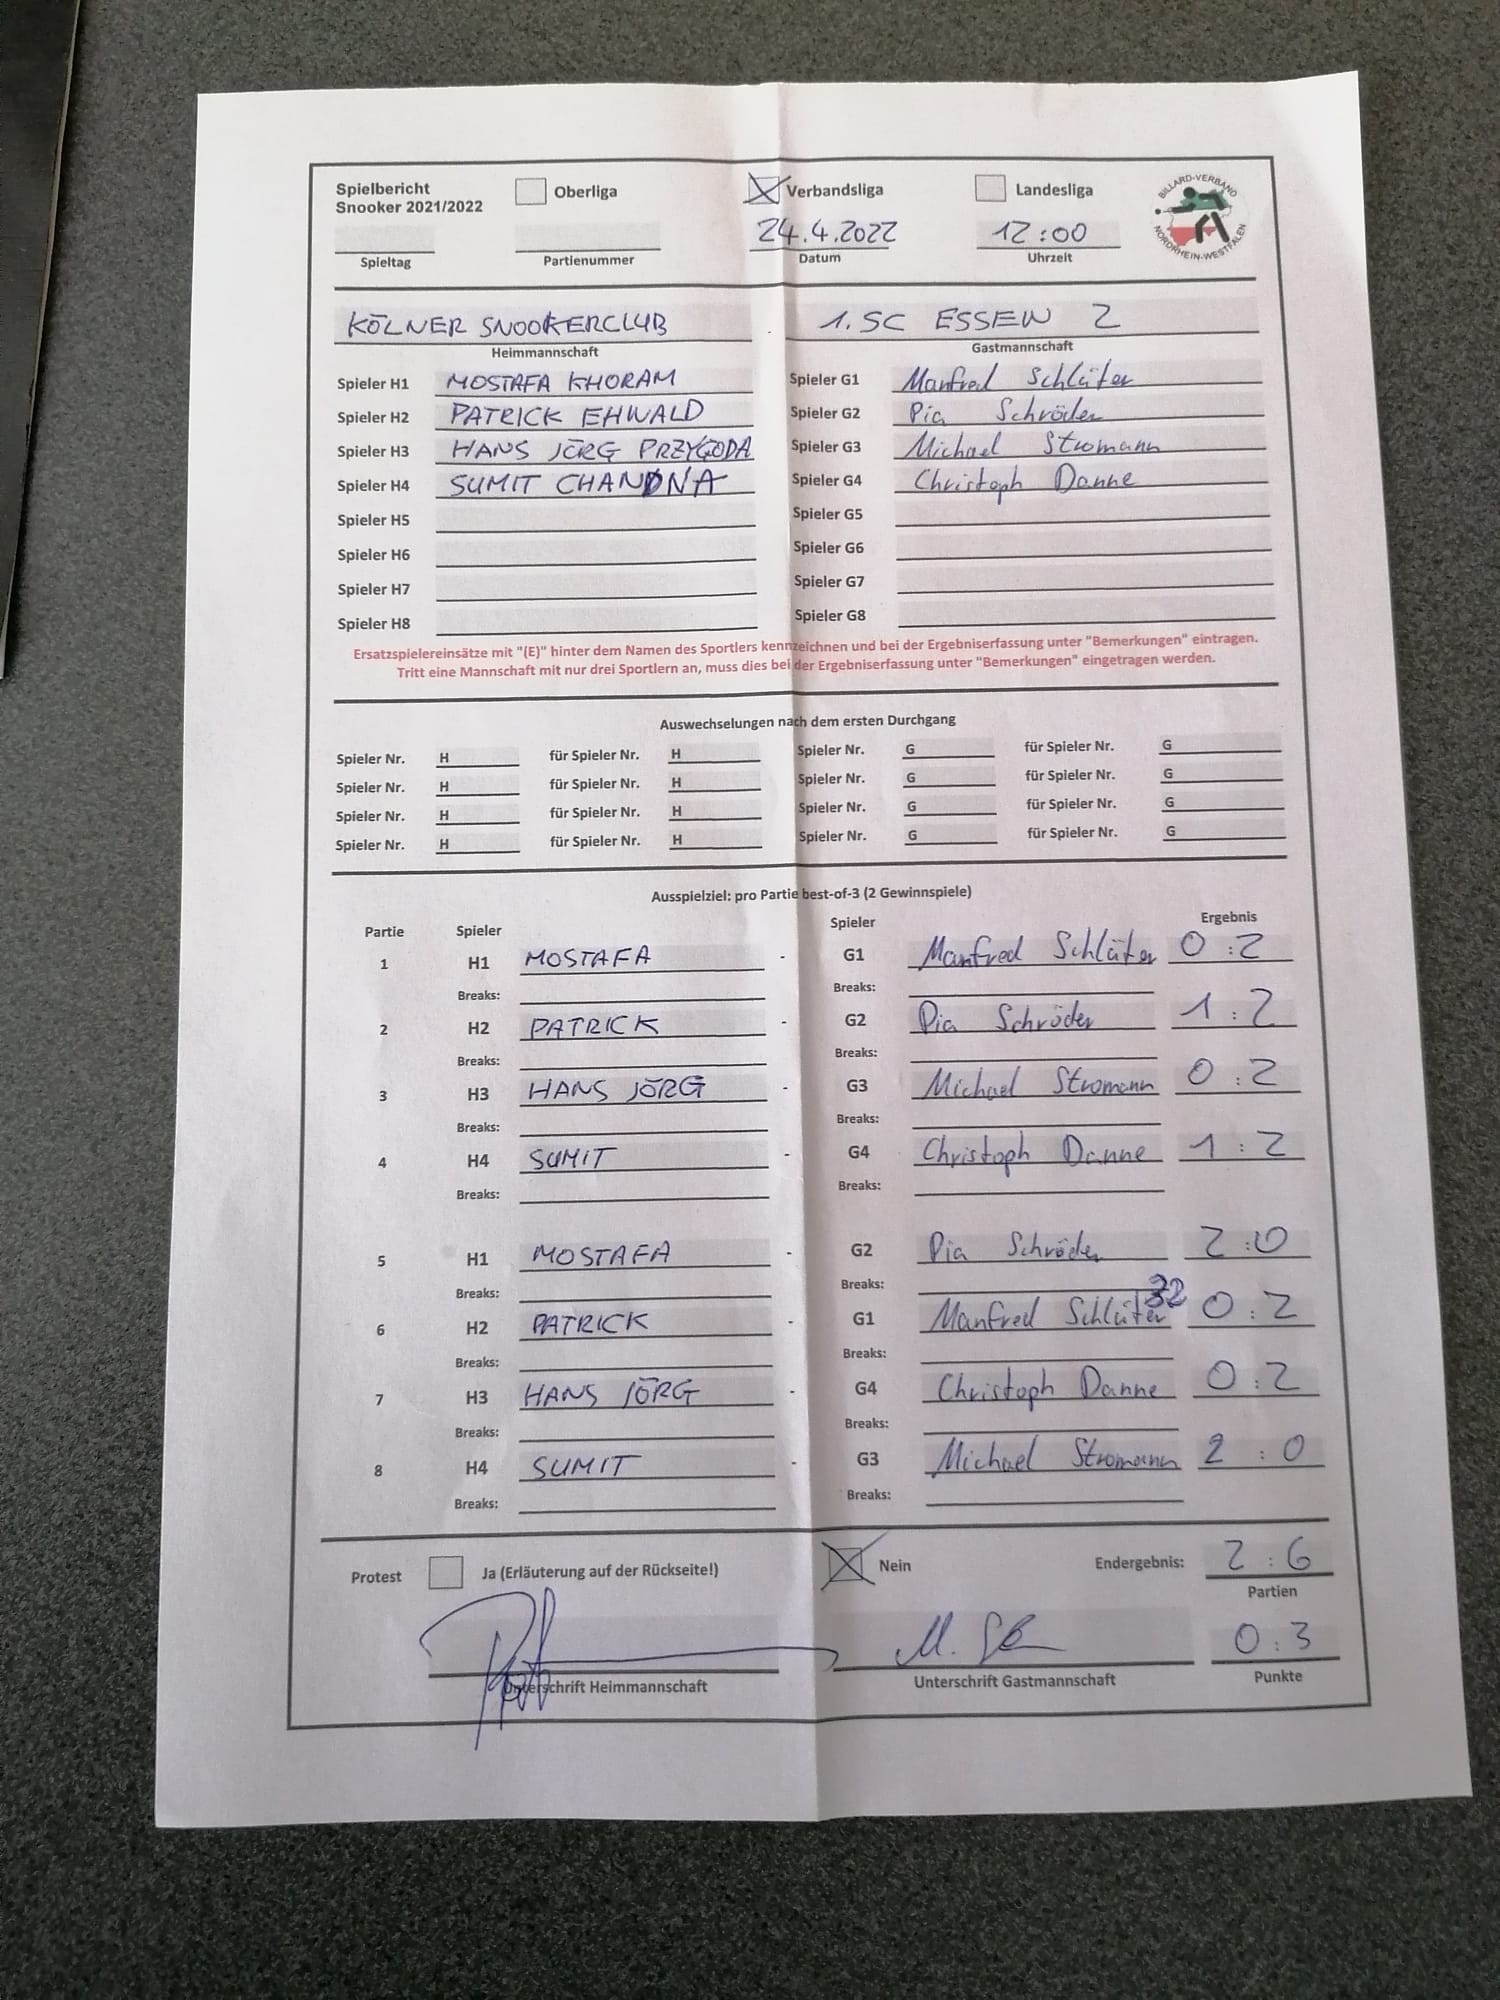 Spielbericht Oberliga Verbandsliga Landesliga
Snooker 2021/2022
24.4.2022 12:00
Spieltag Partienummer Datum Uhrzeit
BILLARD-VERBAND
NORDRHEIN-WESTFALEN
KÖLNER SNOOKERCLUB 1. SC ESSEN 2
Heimmannschaft Gastmannschaft
Spieler H1 MOSTAFA KHORAM Spieler G1 Manfred Schlüter
Spieler H2 PATRICK EHWALD Spieler G2 Pia Schröder
Spieler H3 HANS JÖRG PRZYGODA Spieler G3 Michael Stromann
Spieler H4 SUMIT CHANDNA Spieler G4 Christoph Danne
Spieler H5 Spieler G5
Spieler H6 Spieler G6
Spieler H7 Spieler G7
Spieler H8 Spieler G8
Ersatzspielereinsätze mit "(E)" hinter dem Namen des Sportlers kennzeichnen und bei der Ergebniserfassung unter "Bemerkungen" eintragen.
Tritt eine Mannschaft mit nur drei Sportlern an, muss dies bei der Ergebniserfassung unter "Bemerkungen" eingetragen werden.
Auswechselungen nach dem ersten Durchgang
Spieler Nr. H für Spieler Nr. H Spieler Nr. G für Spieler Nr. G
Spieler Nr. H für Spieler Nr. H Spieler Nr. G für Spieler Nr. G
Spieler Nr. H für Spieler Nr. H Spieler Nr. G für Spieler Nr. G
Spieler Nr. H für Spieler Nr. H Spieler Nr. G für Spieler Nr. G
Ausspielziel: pro Partie best-of-3 (2 Gewinnspiele)
Partie Spieler Spieler Ergebnis
1 H1 MOSTAFA - G1 Manfred Schlüter 0 : 2
Breaks: Breaks:
2 H2 PATRICK - G2 Pia Schröder 1 : 2
Breaks: Breaks:
3 H3 HANS JÖRG - G3 Michael Stromann 0 : 2
Breaks: Breaks:
4 H4 SUMIT - G4 Christoph Danne 1 : 2
Breaks: Breaks:
5 H1 MOSTAFA - G2 Pia Schröder 2 : 0
Breaks: Breaks: 32
6 H2 PATRICK - G1 Manfred Schlüter 0 : 2
Breaks: Breaks:
7 H3 HANS JÖRG - G4 Christoph Danne 0 : 2
Breaks: Breaks:
8 H4 SUMIT - G3 Michael Stromann 2 : 0
Breaks: Breaks:
Protest Ja (Erläuterung auf der Rückseite!) Nein Endergebnis: 2 : 6
Partien
0 : 3
Unterschrift Heimmannschaft Unterschrift Gastmannschaft Punkte